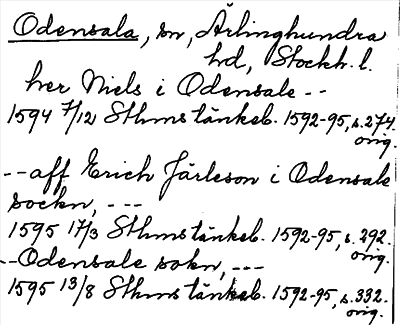 Odensala, sn, Ärlinghundra
hd, Stockh. l.
her Niels i Odensale --
1594 7/12 Sthms tänkeb. 1592-95, s. 274.
orig.
-- aff Erich Järleson i Odensale
sockn, ---
1595 17/3 Sthms tänkeb. 1592-95, s. 292.
orig.
-- Odensale sokn, ---
1595 13/8 Sthms tänkeb. 1592-95, s. 332.
orig.